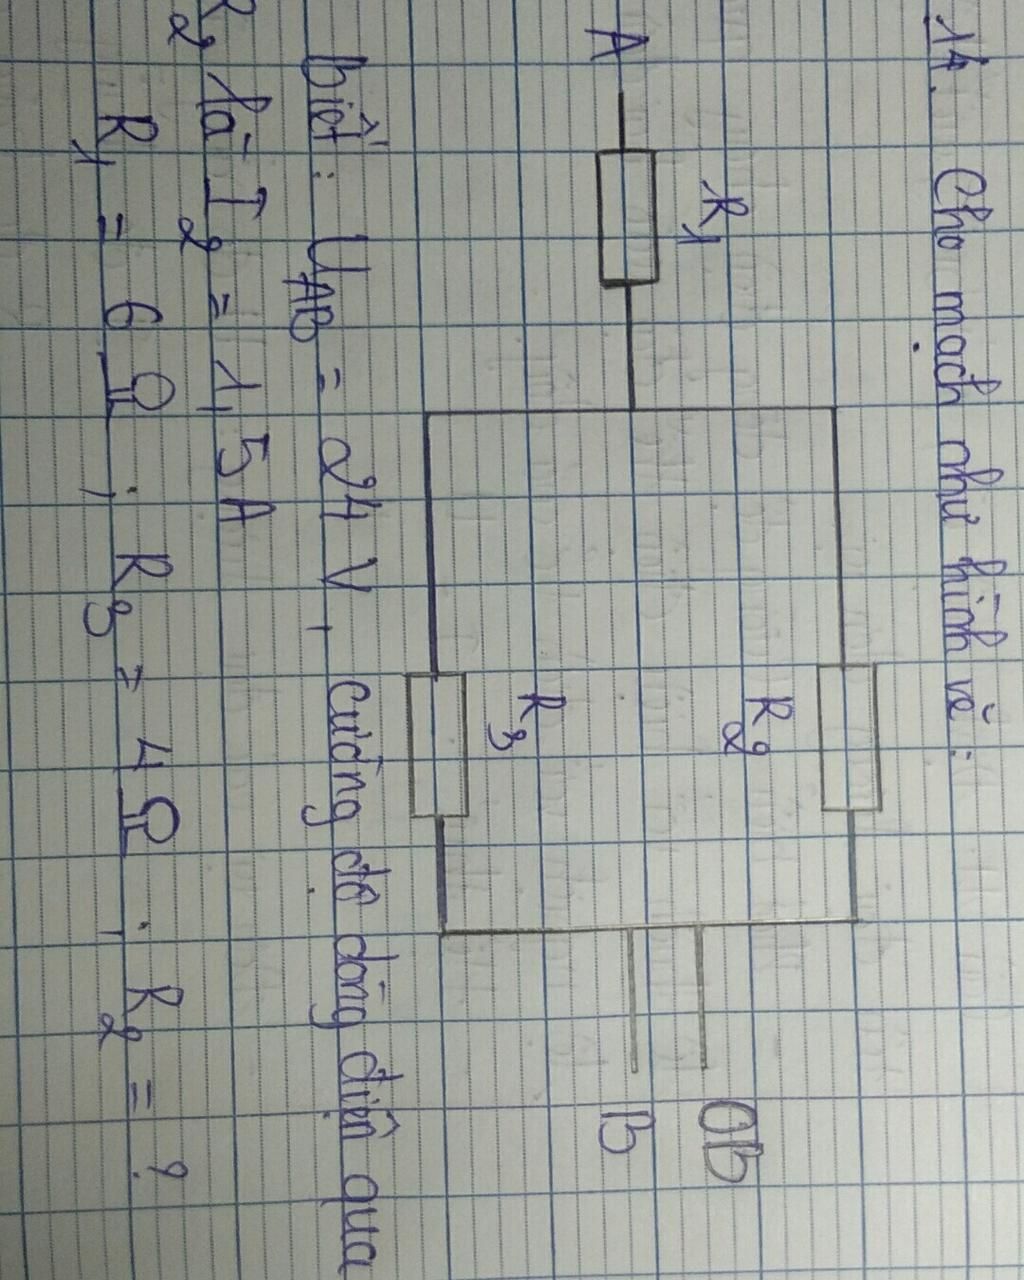 14. Cho mạch như hình vẽ:
R2
R1
A
OB
B
R3
biết: UAB = 24 V, cường độ dòng điện qua
R2 là I2 = 1,5A
R1 = 6 Ω ; R3 = 4 Ω ; R2 = ?